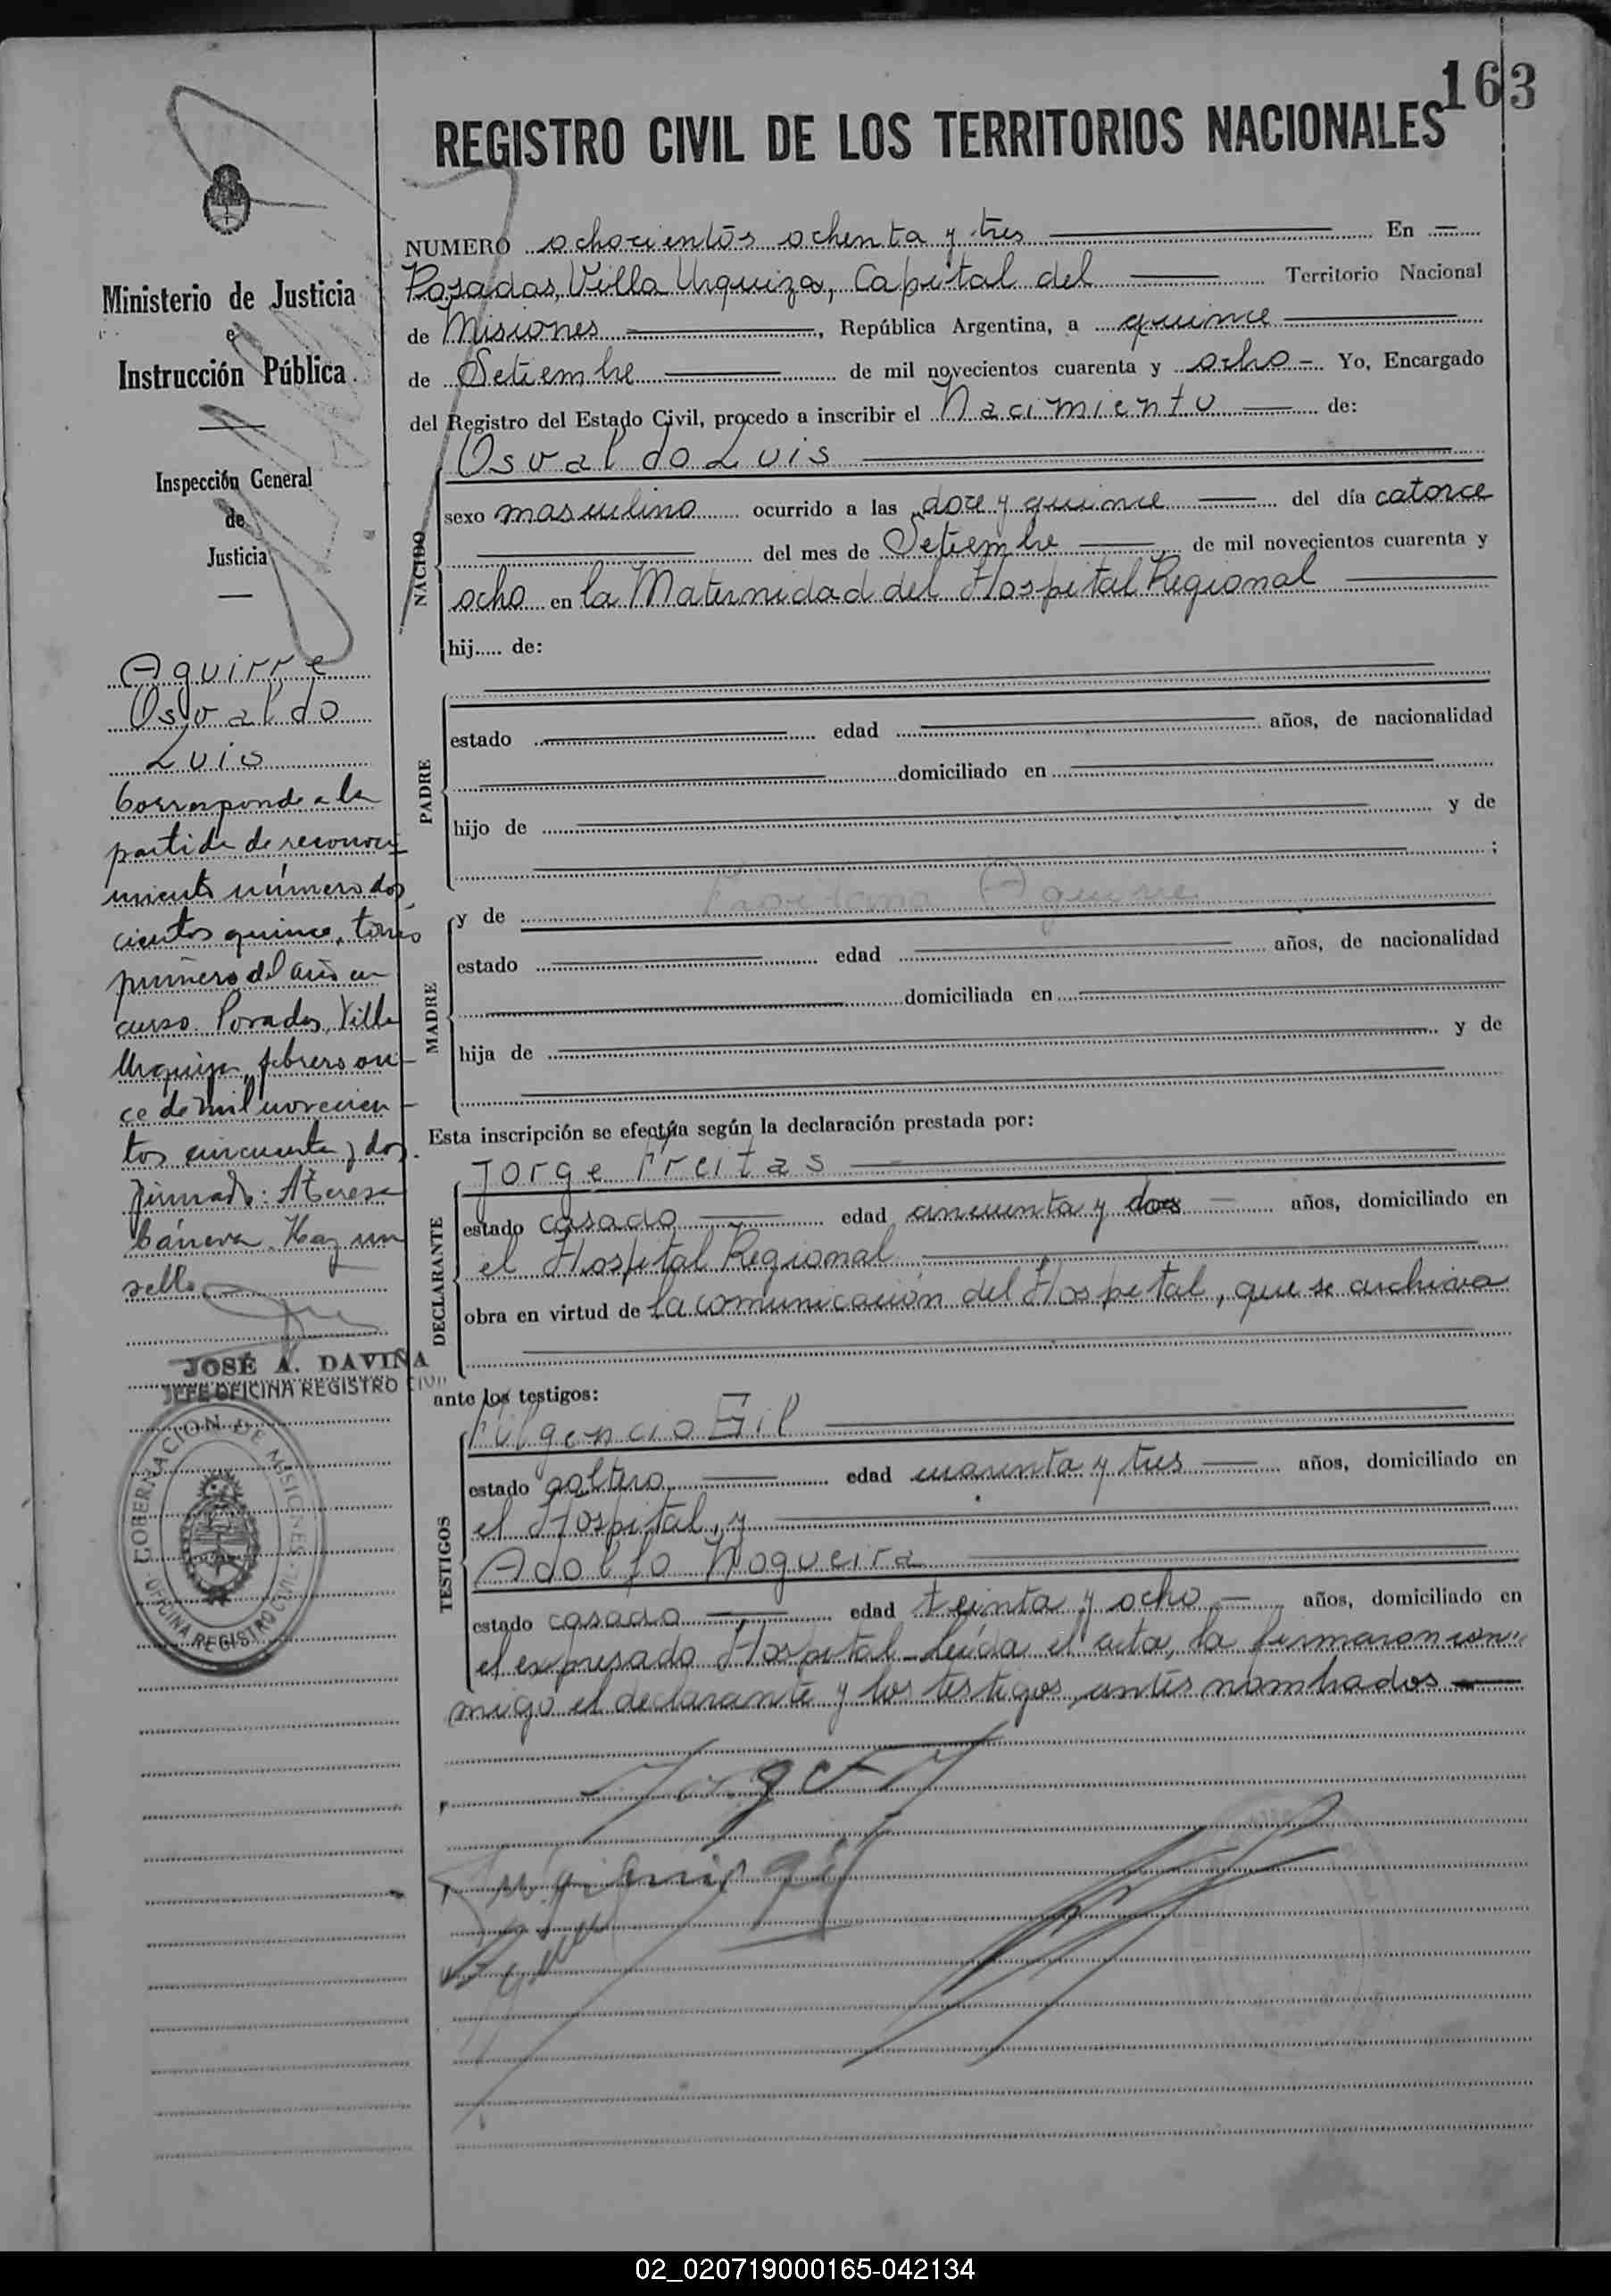 163
REGISTRO CIVIL DE LOS TERRITORIOS NACIONALES
Ministerio de Justicia
e
Instrucción Pública
Inspección General
de
Justicia
Aguirre
Osvaldo
Luis
Corresponde a la
partida de reconoci-
miento número dos
cientos quince, tomo
primero del año en
curso. Posadas, Villa
Urquiza, febrero on-
ce de mil novecien-
tos cincuenta y dos.
firmado: A Teresa
Hay un
sello
JOSÉ A. DAVIÑA
JEFE OFICINA REGISTRO CIVIL
GOBERNACION DE MISIONES
OFICINA REGISTRO CIVIL
NUMERO ochocientos ochenta y tres En
Posadas, Villa Urquiza, Capital del Territorio Nacional
de Misiones, República Argentina, a quince
de Setiembre de mil novecientos cuarenta y ocho Yo, Encargado
del Registro del Estado Civil, procedo a inscribir el Nacimiento de:
Osvaldo Luis
NACIDO
sexo masculino ocurrido a las doce y quince del día catorce
del mes de Setiembre de mil novecientos cuarenta y
ocho en la Maternidad del Hospital Regional
hij..... de:
PADRE
estado edad años, de nacionalidad
domiciliado en
hijo de y de
;
MADRE
y de Aguirre
estado edad años, de nacionalidad
domiciliada en
hija de y de
Esta inscripción se efectúa según la declaración prestada por:
Jorge Freitas
DECLARANTE
estado casado edad cincuenta y dos años, domiciliado en
el Hospital Regional
obra en virtud de la comunicación del Hospital, que se archiva
ante los testigos:
Fulgencio Gil
TESTIGOS
estado soltero edad cuarenta y tres años, domiciliado en
el Hospital, y
Adolfo Nogueira
estado casado edad treinta y ocho años, domiciliado en
el expresado Hospital leída el acta, la firmaron con-
migo el declarante y los testigos antes nombrados
02_020719000165-042134